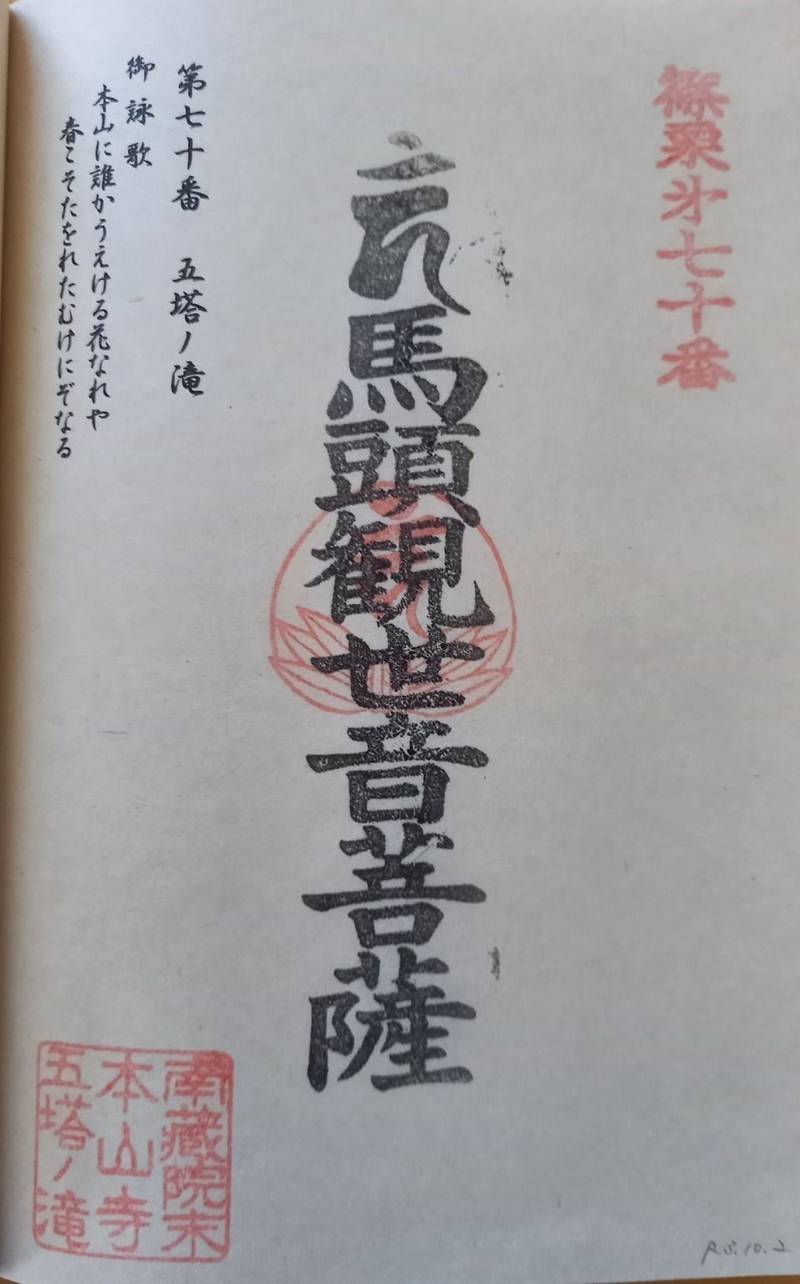 篠栗第七十番
馬頭観世音菩薩
第七十番 五塔ノ滝
御詠歌
本山に誰かうえける花なれや
春こそたをれたむけにぞなる
南蔵院末
本山寺
五塔ノ滝